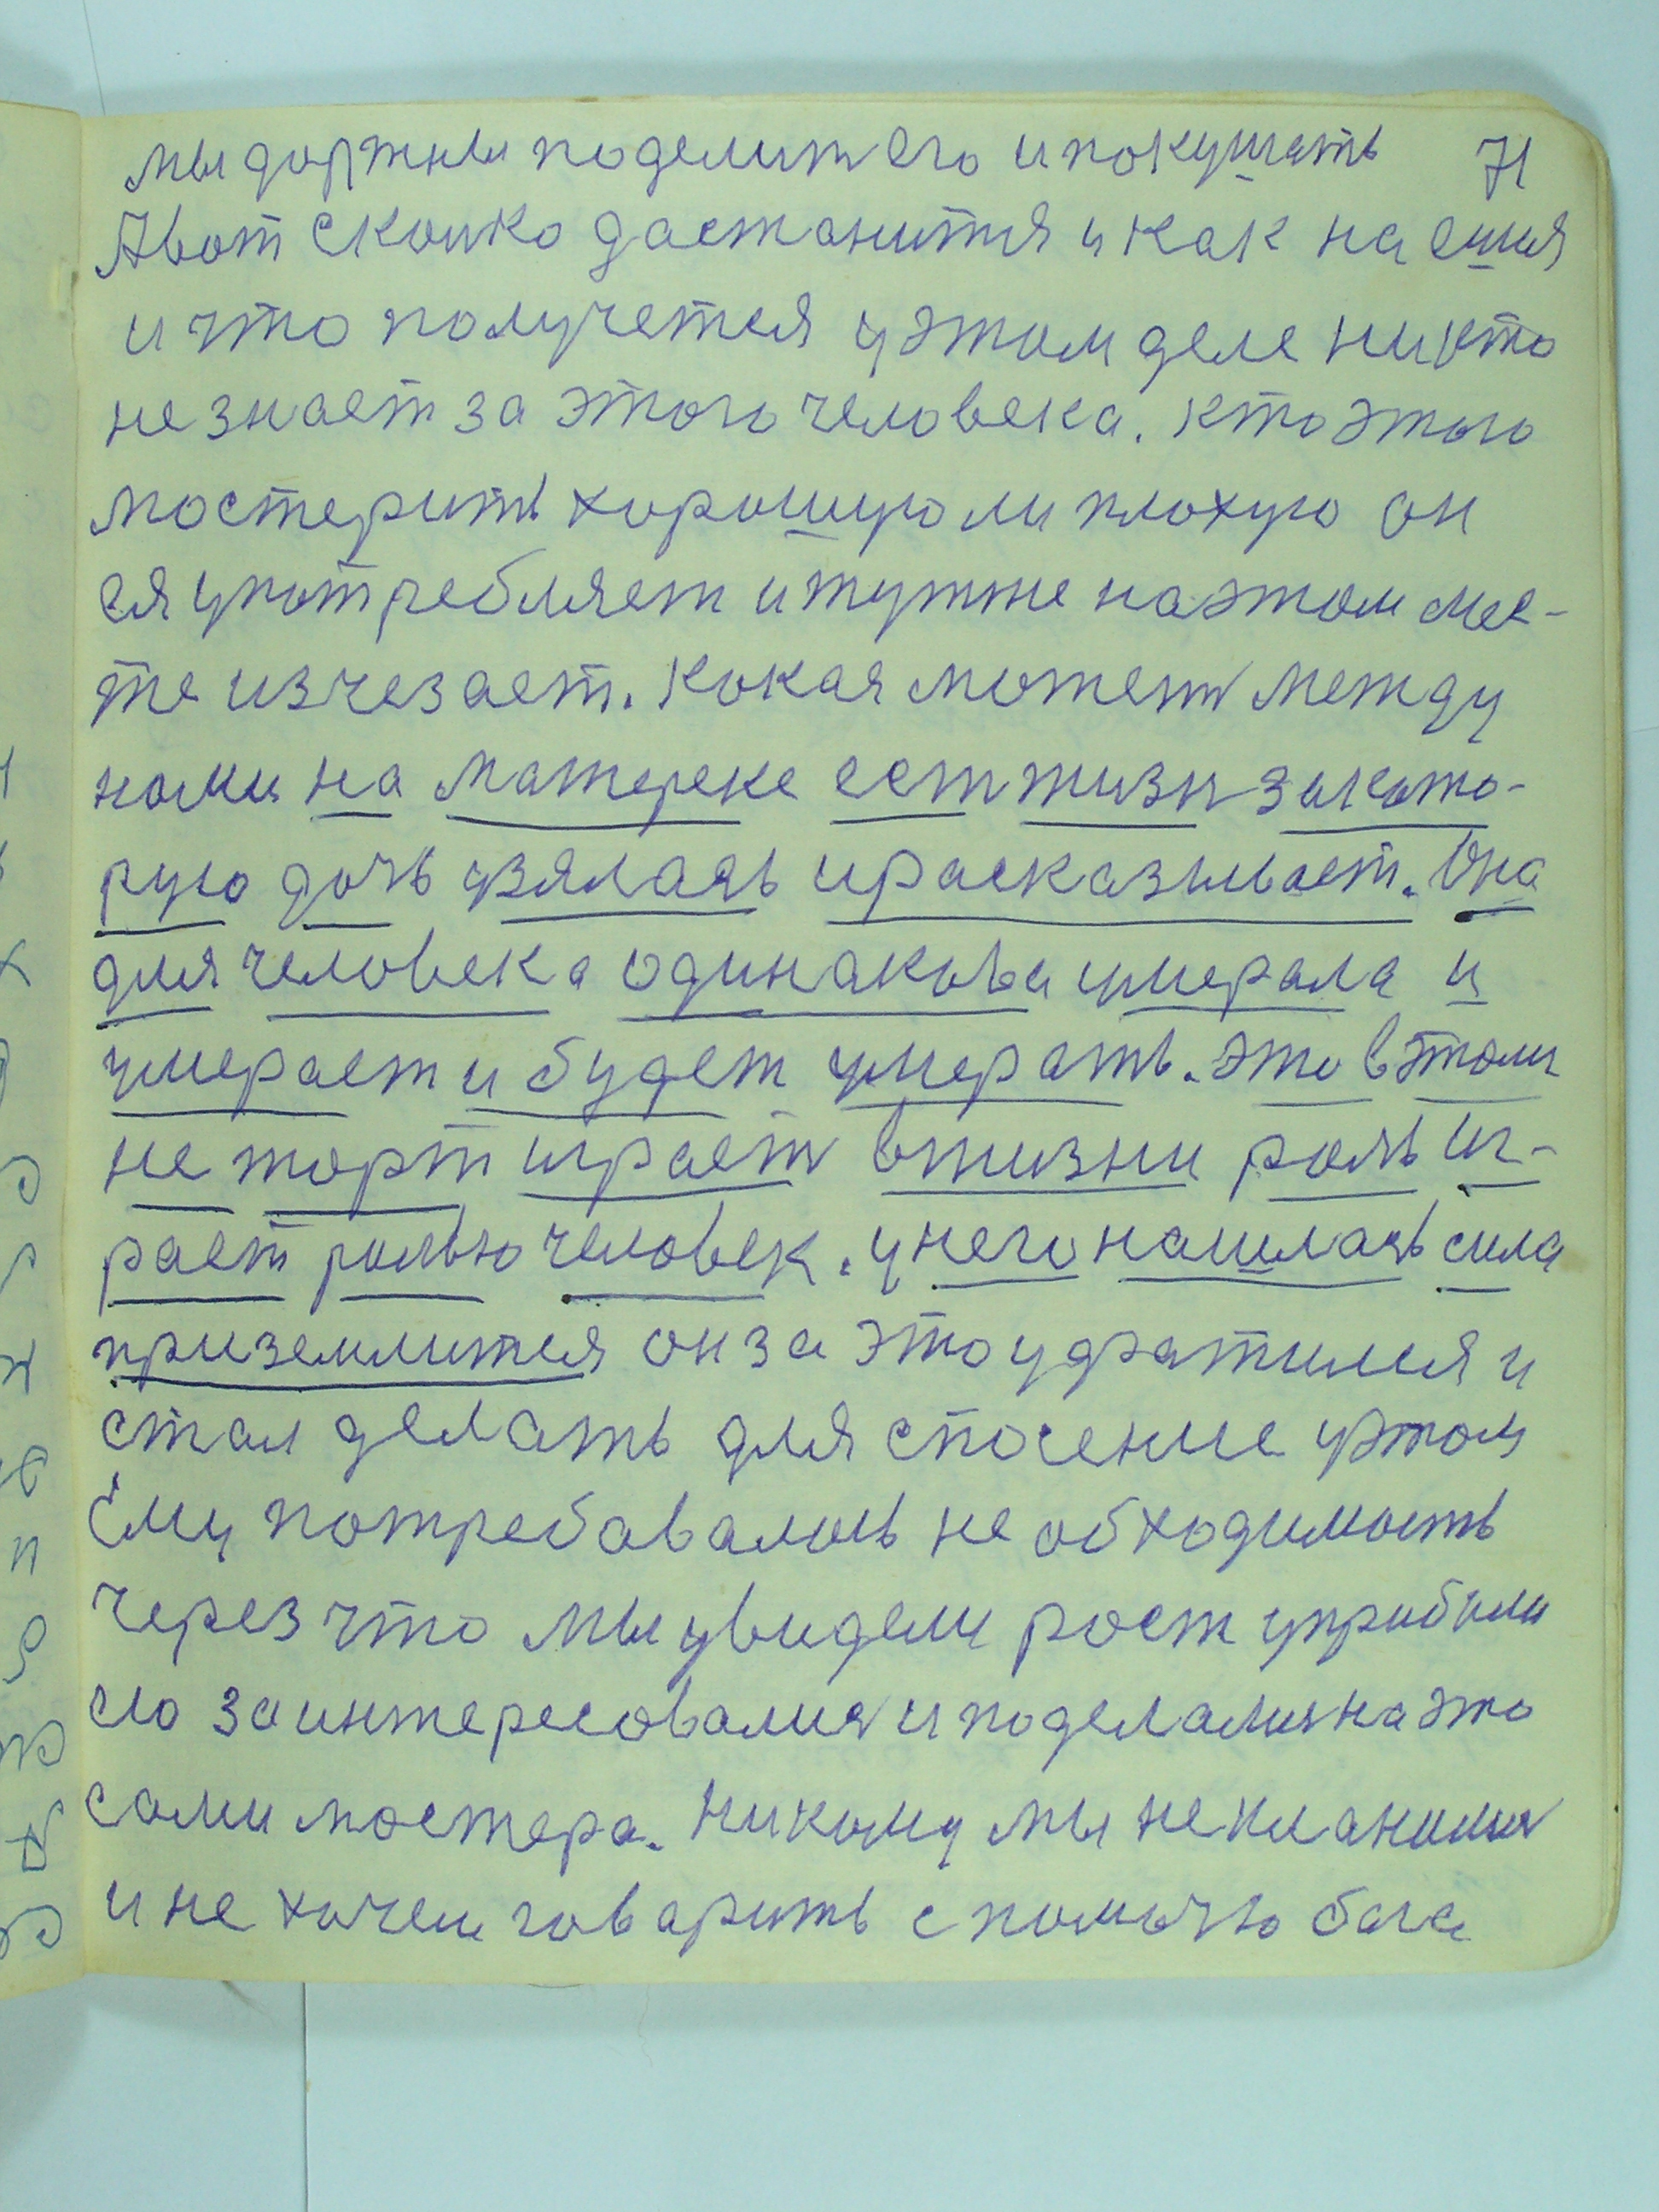 мы должны поделит его и покушать 71
А вот сколко дастанится и как наешся
и что получется у этом деле никто
не знает за этого человека. кто этого
мостерить хорошую ли плохую он
ея употребляет и тутже наэтом мес-
те изчезает. Кокая может между
номи на матереке ест жизн закото-
рую дочь узялась ирасказывает. Она
для человека одинакова умерала и
умерает и будет умерать. это вэтом
не торт играет вжизни роль иг-
рает ролью человек. у него нашлась сила
приземлится он за это удратился и
стал делать для спосение уэтом
Ему потребавалось не обходимость
через что мы увидели рост
его заинтересовалися и поделалися на это
соми мостера. Никому мы не кланимся
и не хочем говарить с помочью бога